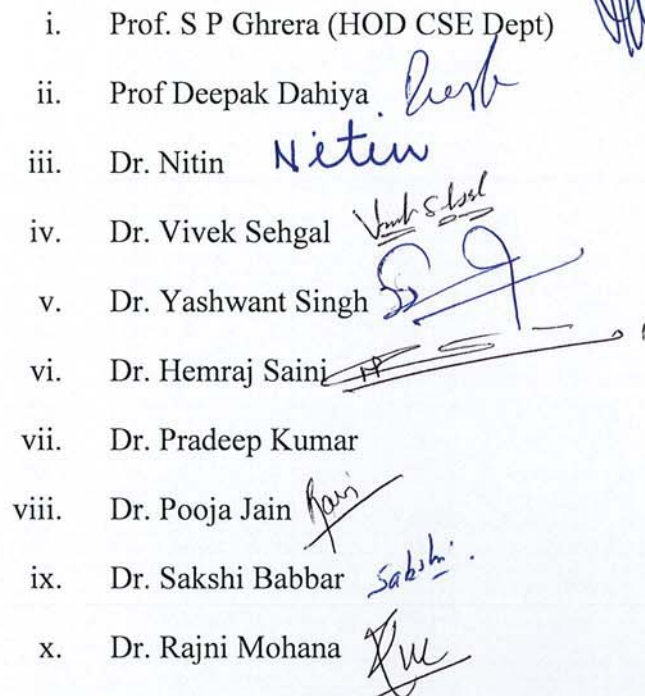 i. Prof. S P Ghrera (HOD CSE Dept)
ii. Prof Deepak Dahiya
iii. Dr. Nitin Nitin
iv. Dr. Vivek Sehgal
v. Dr. Yashwant Singh
vi. Dr. Hemraj Saini
vii. Dr. Pradeep Kumar
viii. Dr. Pooja Jain
ix. Dr. Sakshi Babbar Sakshi.
x. Dr. Rajni Mohana